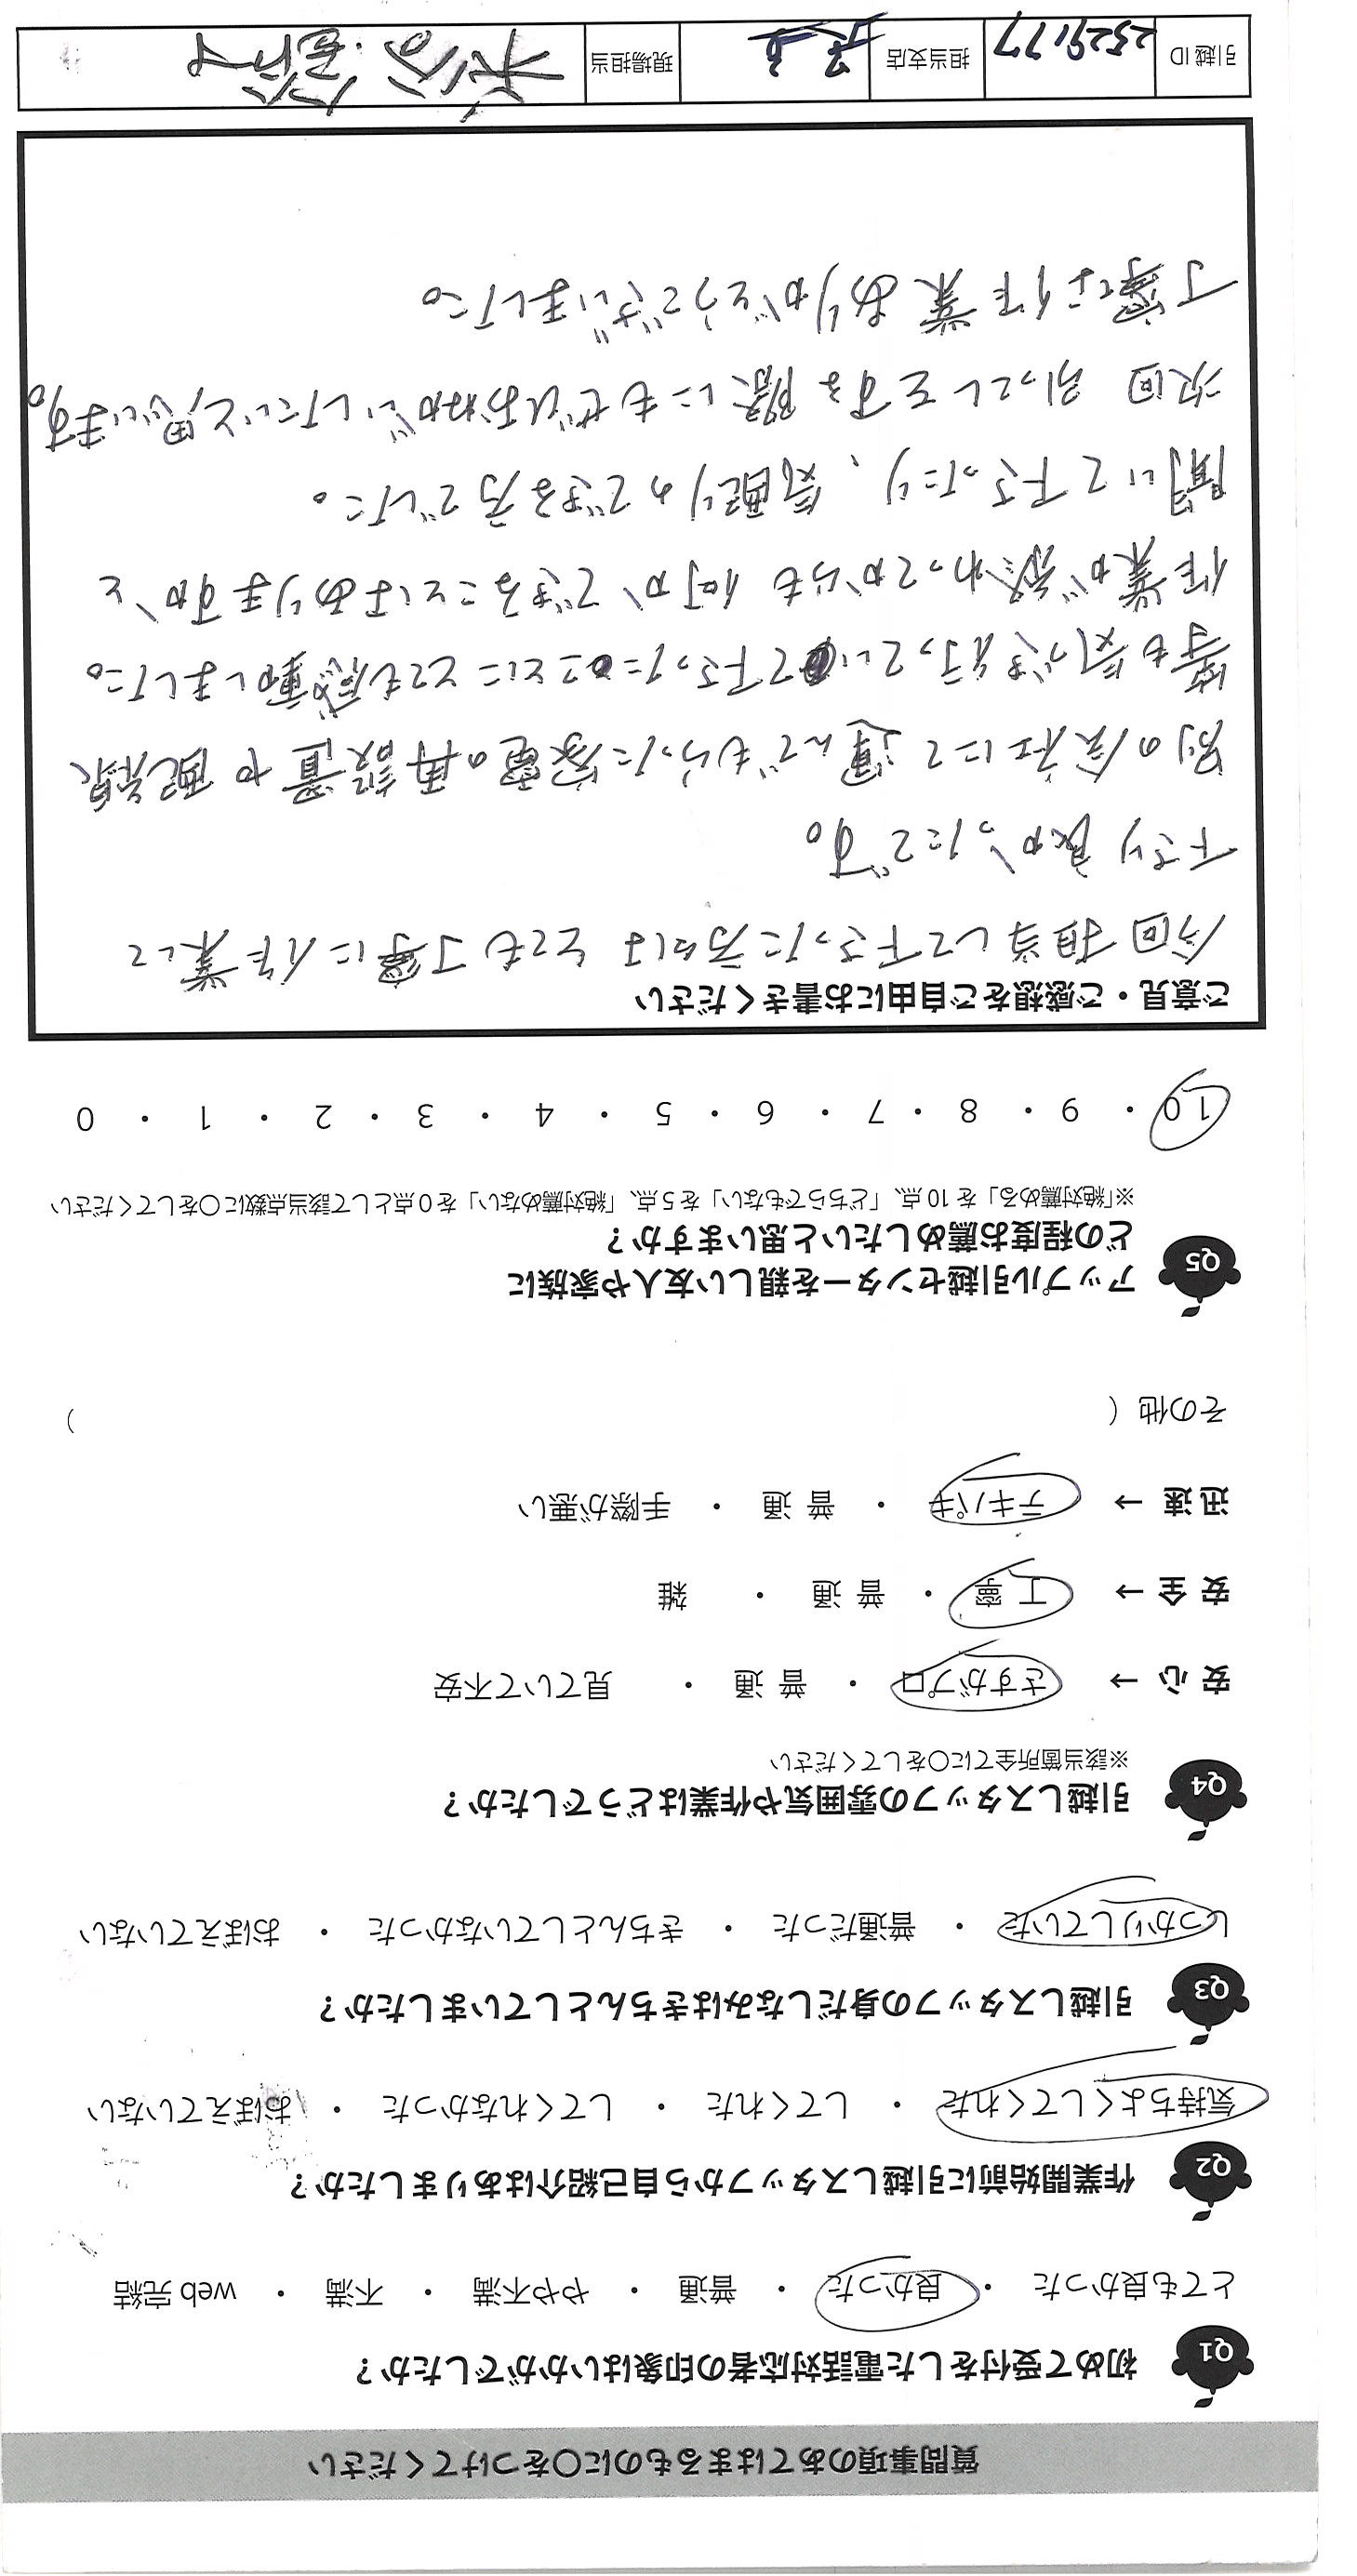 質問事項のあてはまるものに○をつけてください
Q1 初めて受付をした電話対応者の印象はいかがでしたか？
とても良かった ・ 良かった ・ 普通 ・ やや不満 ・ 不満 ・ web 完結
Q2 作業開始前に引越しスタッフから自己紹介はありましたか？
気持ちよくしてくれた ・ してくれた ・ してくれなかった ・ おぼえていない
Q3 引越しスタッフの身だしなみはきちんとしていましたか？
しっかりしていた ・ 普通だった ・ きちんとしていなかった ・ おぼえていない
Q4 引越しスタッフの雰囲気や作業はどうでしたか？
※該当箇所全てに○をしてください
安心 → さすがプロ ・ 普通 ・ 見ていて不安
安全 → 丁寧 ・ 普通 ・ 雑
迅速 → テキパキ ・ 普通 ・ 手際が悪い
その他（ ）
Q5 アップル引越センターを親しい友人や家族に
どの程度お薦めしたいと思いますか？
※「絶対薦める」を 10 点、「どちらでもない」を 5 点、「絶対薦めない」を 0 点として該当点数に○をしてください
10 ・ 9 ・ 8 ・ 7 ・ 6 ・ 5 ・ 4 ・ 3 ・ 2 ・ 1 ・ 0
ご意見・ご感想をご自由にお書きください
今回 担当して下さった方々は とても丁寧に作業して
下さり 良かったです。
別の会社にて運んでもらった家電の再設置や配線
等も気づき行っていて下さったことにとても感動しました。
作業が終わってからも 何かできることはありますか、と
聞いて下さったり、気配りのできる方でした。
次回 引っこしをする際にもぜひおねがいしたいと思います。
丁寧な作業ありがとうございました。
引越 ID 2529177 担当支店 現場担当